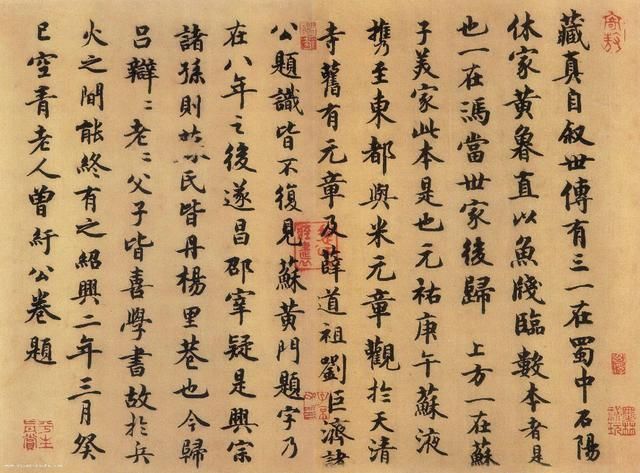 藏真自叙世傳有三一在蜀中石陽
休家黃魯直以魚牋臨數本者是
也一在馮當世家後歸　上方一在蘇
子美家此本是也元祐庚午蘇液
携至東都與米元章觀於天清
寺舊有元章及薛道祖劉巨濟諸
公題識皆不復見蘇黃門題字乃
在八年之後遂昌邵宰疑是興宗
諸孫則蘇氏皆丹楊里巷也今歸
呂辯〻老〻父子皆喜學書故於兵
火之間能終有之紹興二年三月癸
巳空青老人曾紆公卷題